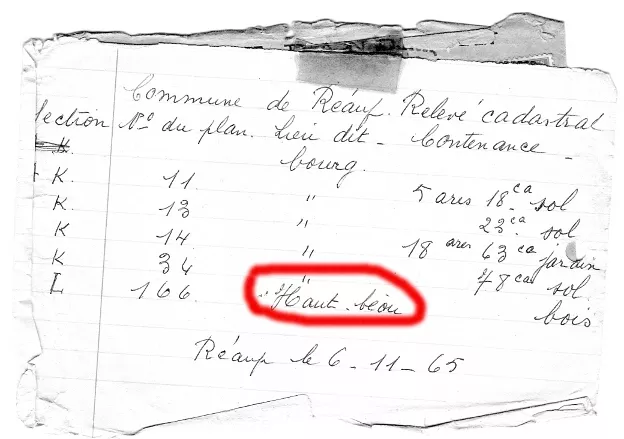 Commune de Réaup. Relevé cadastral
Section N.º du plan. Lieu dit - Contenance -
K. bourg.
K. 11 " 5 ares 18 ca sol
K. 13 " 23 ca sol
K. 14 " 18 ares 63 ca jardin
K 34 " 78 ca sol
L 166. "Haut-béou bois
Réaup le 6-11-65